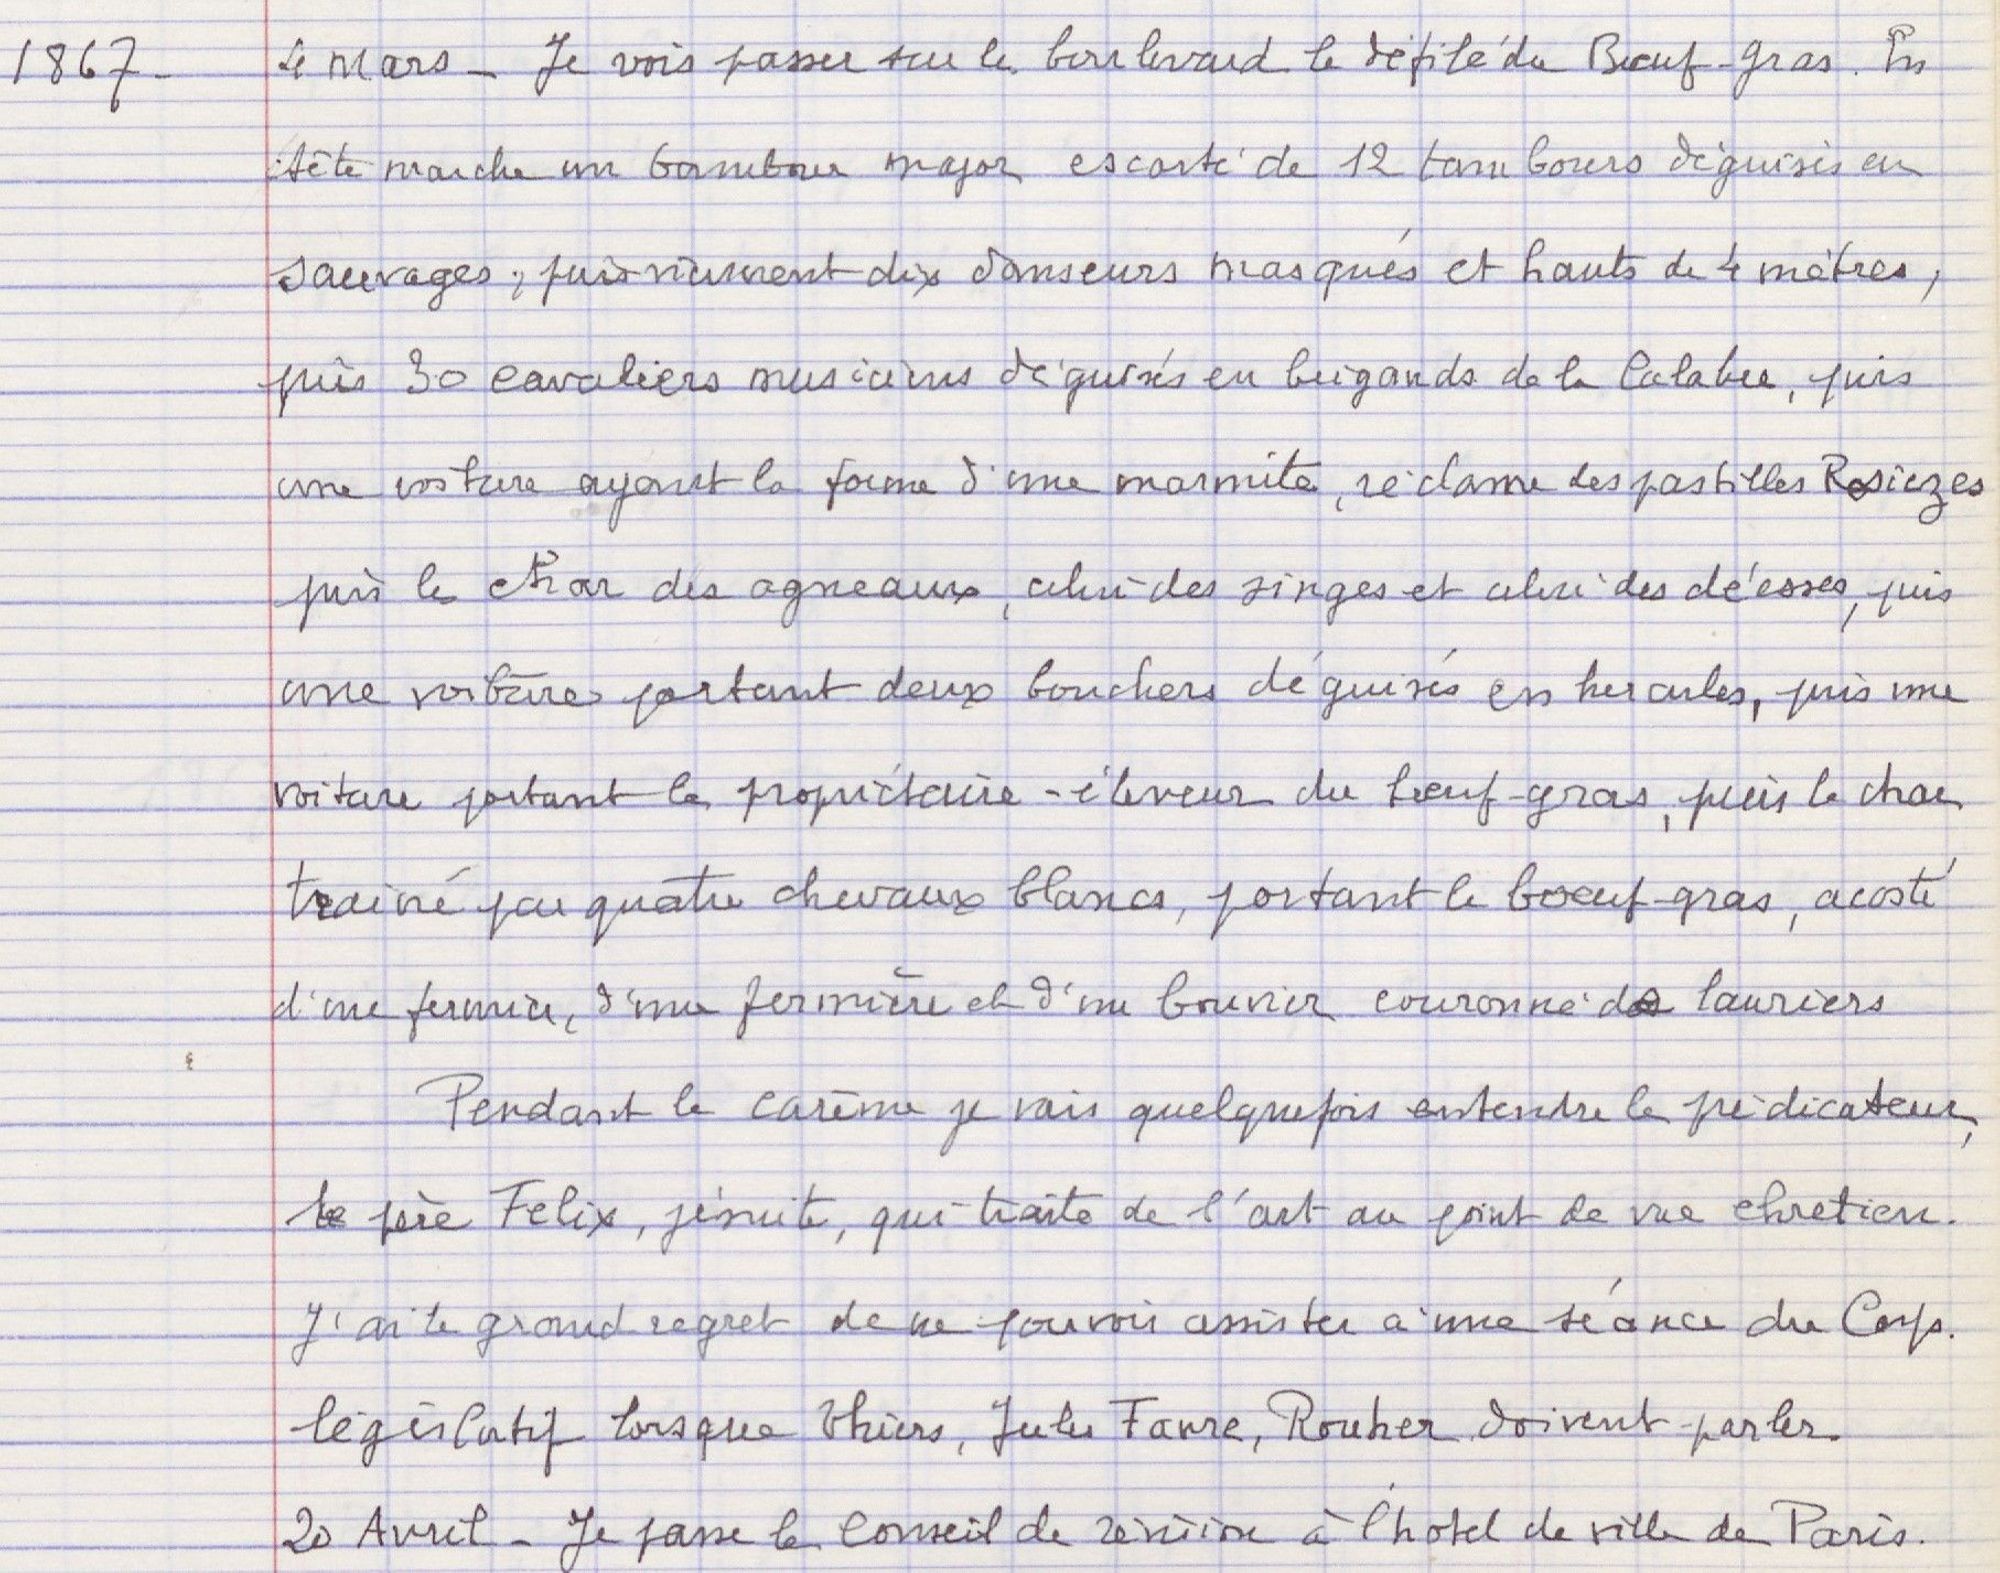 1867_ 4 mars _ Je vois passer sur le boulevard le défilé du Bœuf-Gras. En
tête marche un tambour major escorté de 12 tambours déguisés en
sauvages ; puis viennent dix danseurs masqués et hauts de 4 mètres,
puis 30 cavaliers musiciens déguisés en brigands de la Calabre, puis
une voiture ayant la forme d'une marmite, réclame des pastilles
puis le char des agneaux, celui des singes et celui des déesses, puis
une voiture portant deux bouchers déguisés en hercules, puis une
voiture portant le propriétaire-éleveur du bœuf-gras, puis le char
trainé par quatre chevaux blancs, portant le bœuf-gras, acosté
d'une fermier, d'une fermière et d'un bouvier couronné de lauriers
Pendant le carême je vais quelquefois entendre le prédicateur,
le père Felix, jésuite, qui traite de l'art au point de vue chretien.
J'ai le grand regret de ne pouvoir assister à une séance du Corps.
législatif lorsque Thiers, Jules Favre, Rouher doivent parler.
20 Avril _ Je passe le Conseil de révision à l'hotel de ville de Paris.